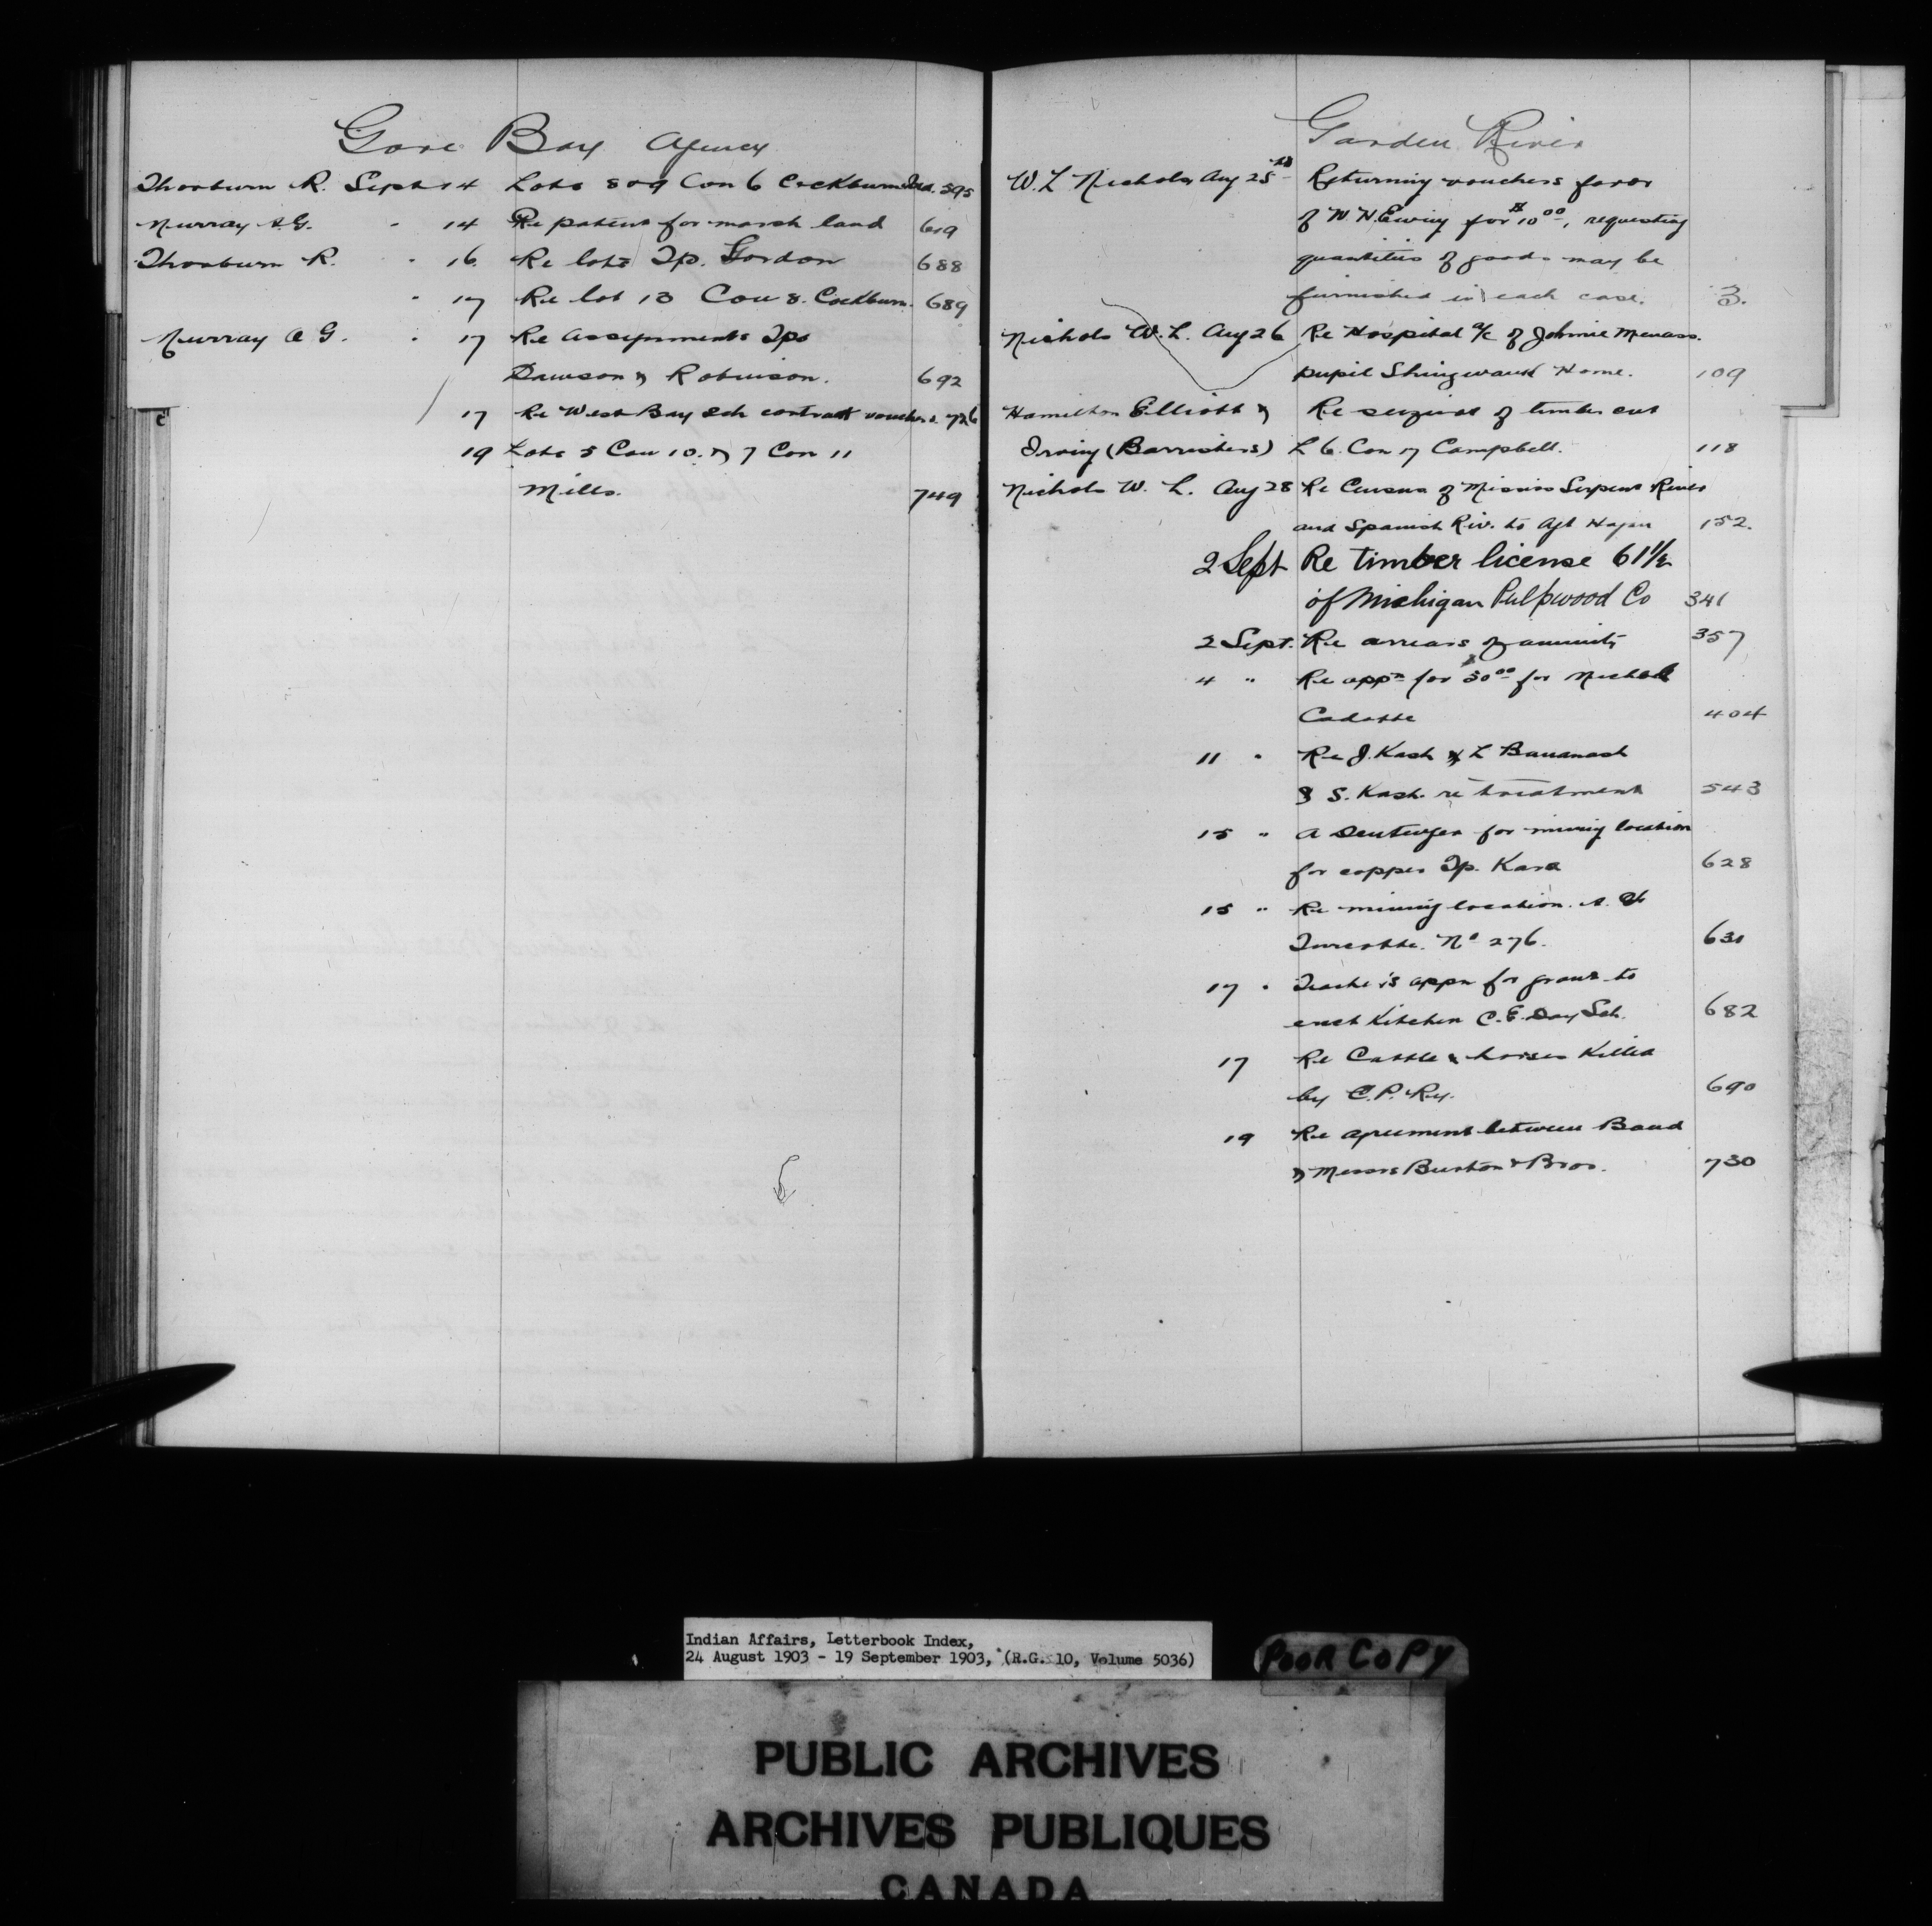 Gore Bay Agency
Thorburn R. Sept 14 Lots 8 & 9 Con 6 Cockburn Isd. 595
Murray A.G. " 14 Re patent for marsh land 619
Thorburn R. " 16 Re lots Tp. Gordon 688
" 17 Re lot 13 Con 8. Cockburn. 689
Murray A G. " 17 Re Assignments Tps
Dawson & Robinson. 692
17 Re West Bay Sch contract vouchers. 726
19 Lots 5 Con 10. & 7 Con 11
Mills. 749
Garden River
W. L Nichols Aug 25th Returning vouchers favor
of W. H. Ewing for $10 00, requesting
quantities of goods may be
furnished in each case. 3.
Nichols W. L. Aug 26 Re Hospital a/c of Johnnie
pupil Shingwauk Home. 109
Hamilton Elliott & Re seizure of timber cut
Irving (Barristers) L 6. Con 17 Campbell. 118
Nichols W. L. Aug 28 Re Census of Mississ Serpent River
and Spanish Riv. to Agt Hagan 152.
2 Sept Re timber license 61 1/2
of Michigan Pulpwood Co 341
2 Sept. Re arrears of annuity 357
4 " Re appn for $30 00 for
Cadotte 404
11 " Re J. Kash & L
& S. Kash. re treatment 543
15 " A for mining location
for copper Tp. Kars 628
15 " Re mining location. A.
Turcotte. No 276. 630
17 " Teacher's appn for grant to
erect Kitchen C. E. Day Sch. 682
17 Re Cattle & horses Killed
by C. P. Ry. 690
19 Re agreement between Band
& Messrs Burton & Bros. 730
Indian Affairs, Letterbook Index,
24 August 1903 - 19 September 1903, (R.G. 10, Volume 5036)
POOR COPY
PUBLIC ARCHIVES
ARCHIVES PUBLIQUES
CANADA